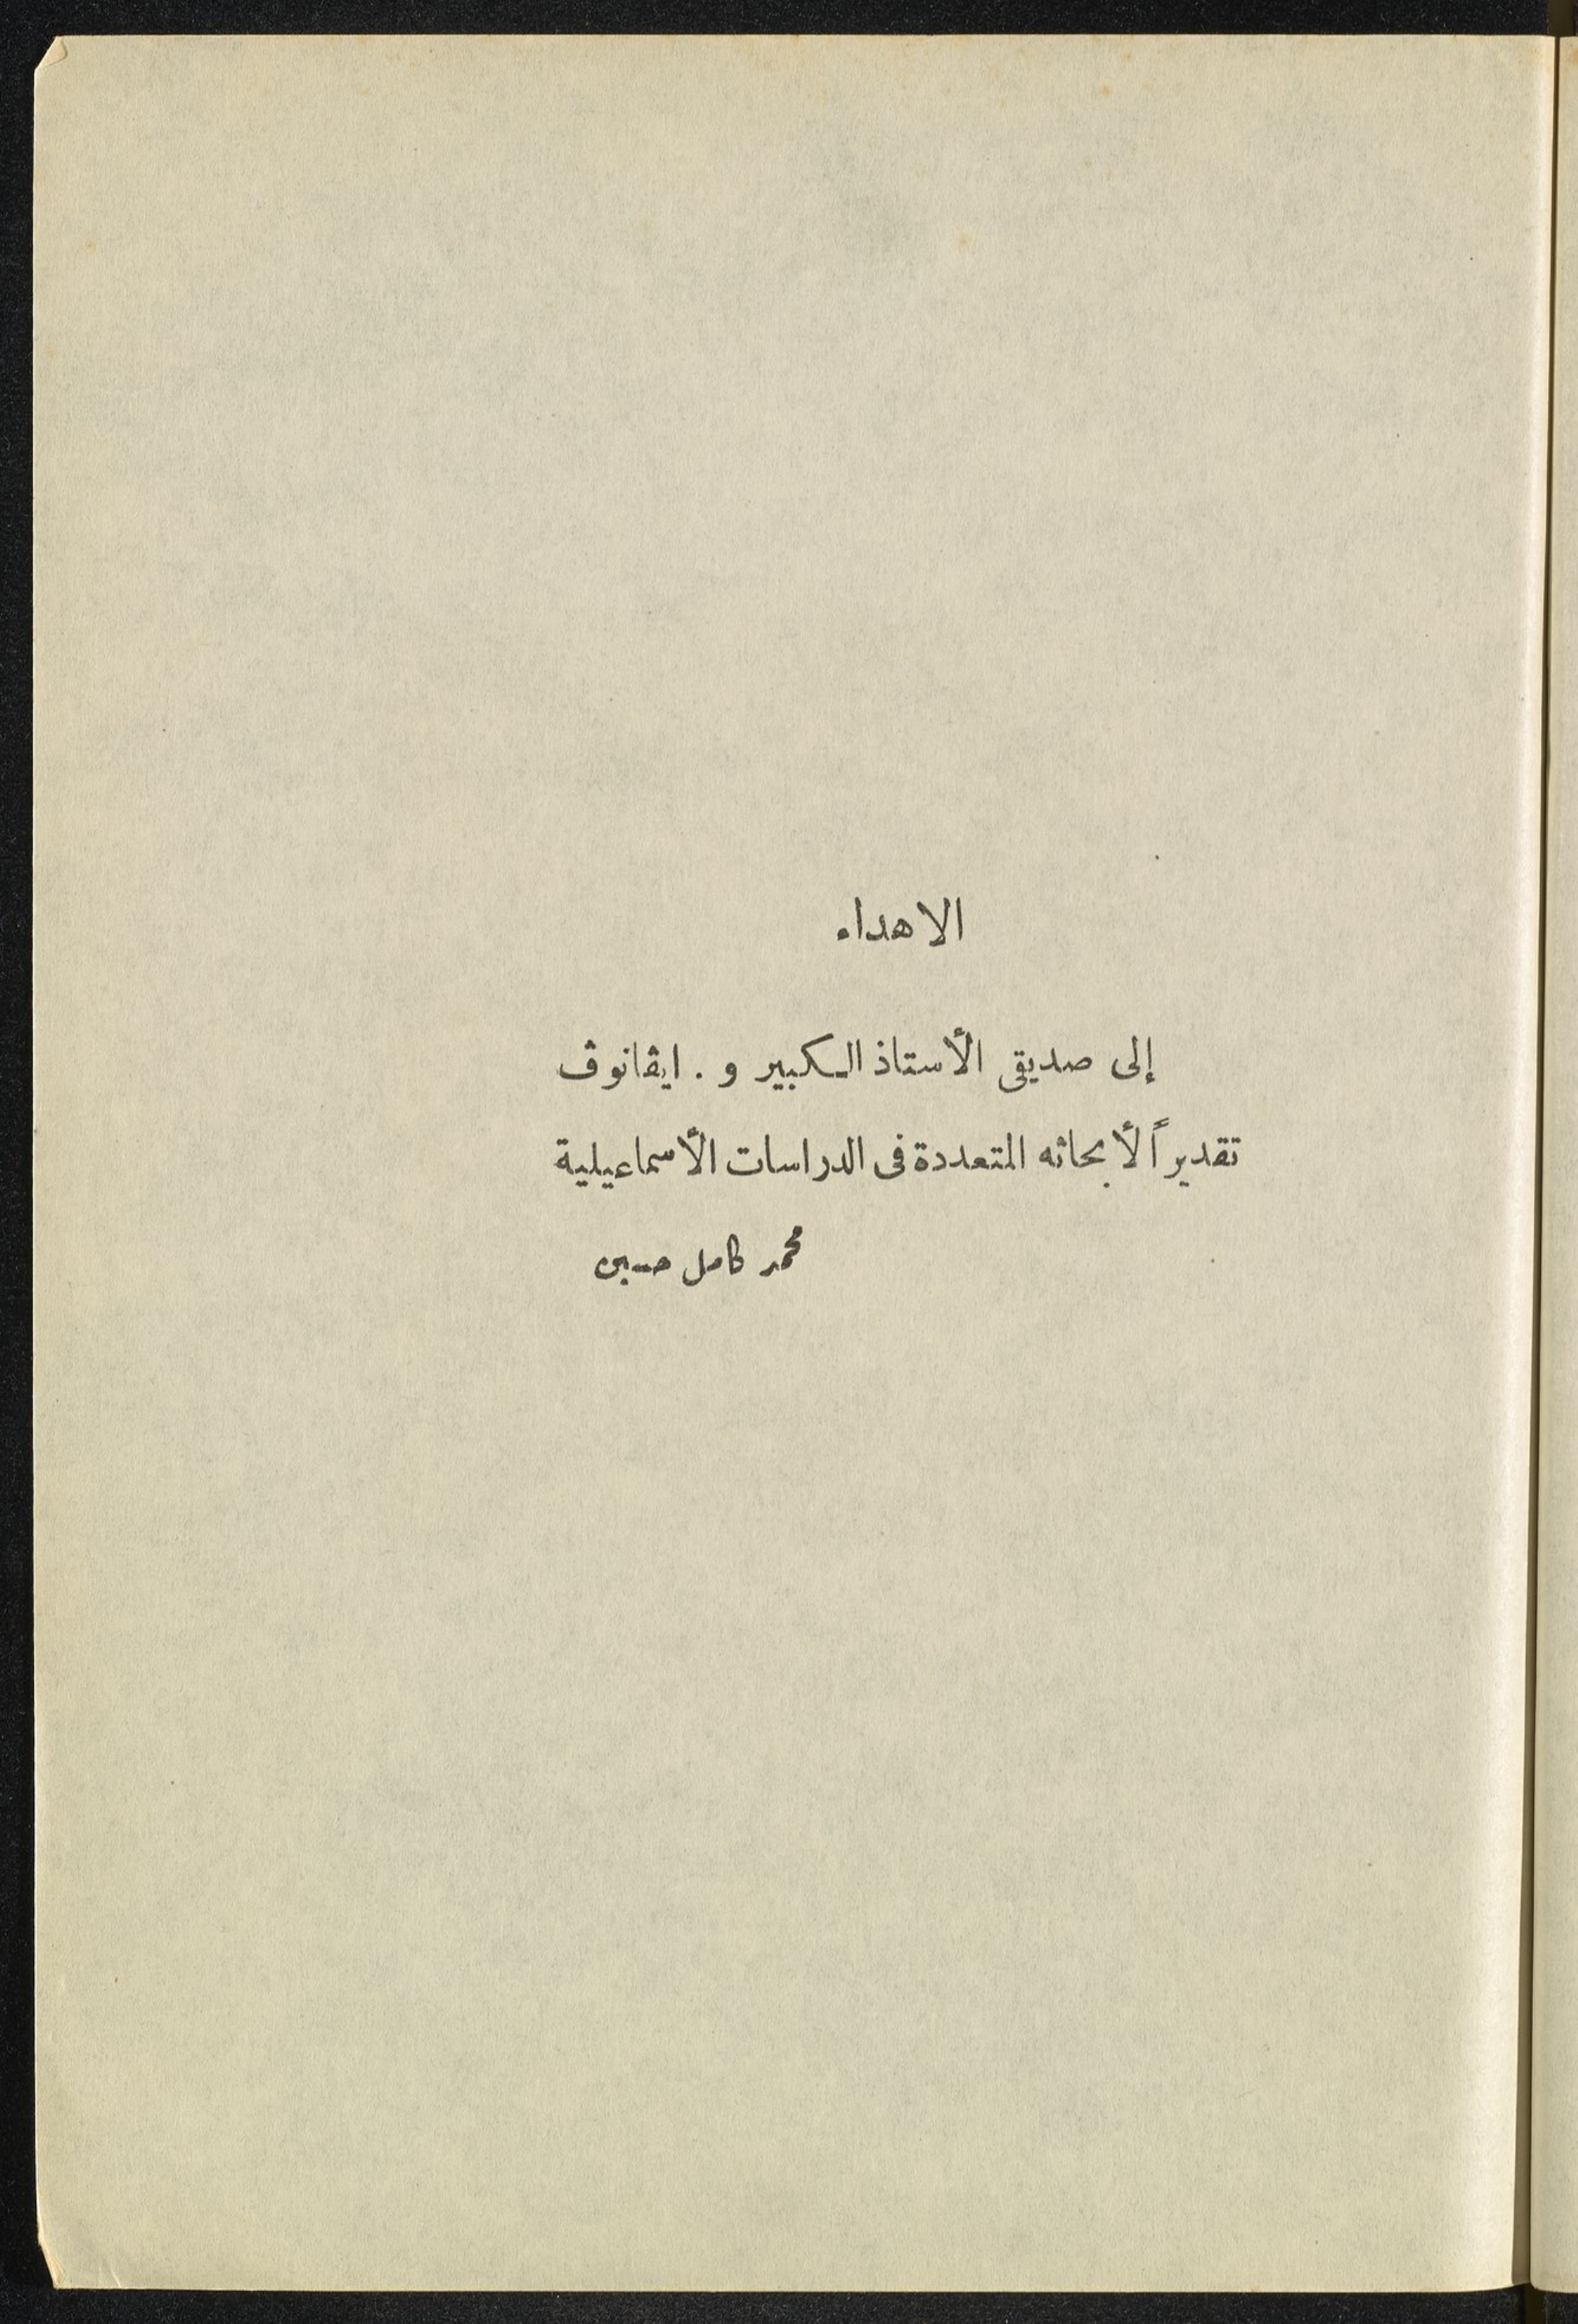 الاهداء
إلى صديقى الأستاذ الكبير و . ايڤانوڤ
تقديراً لأبحاثه المتعددة فى الدراسات الأسماعيلية
محمد كامل حسين